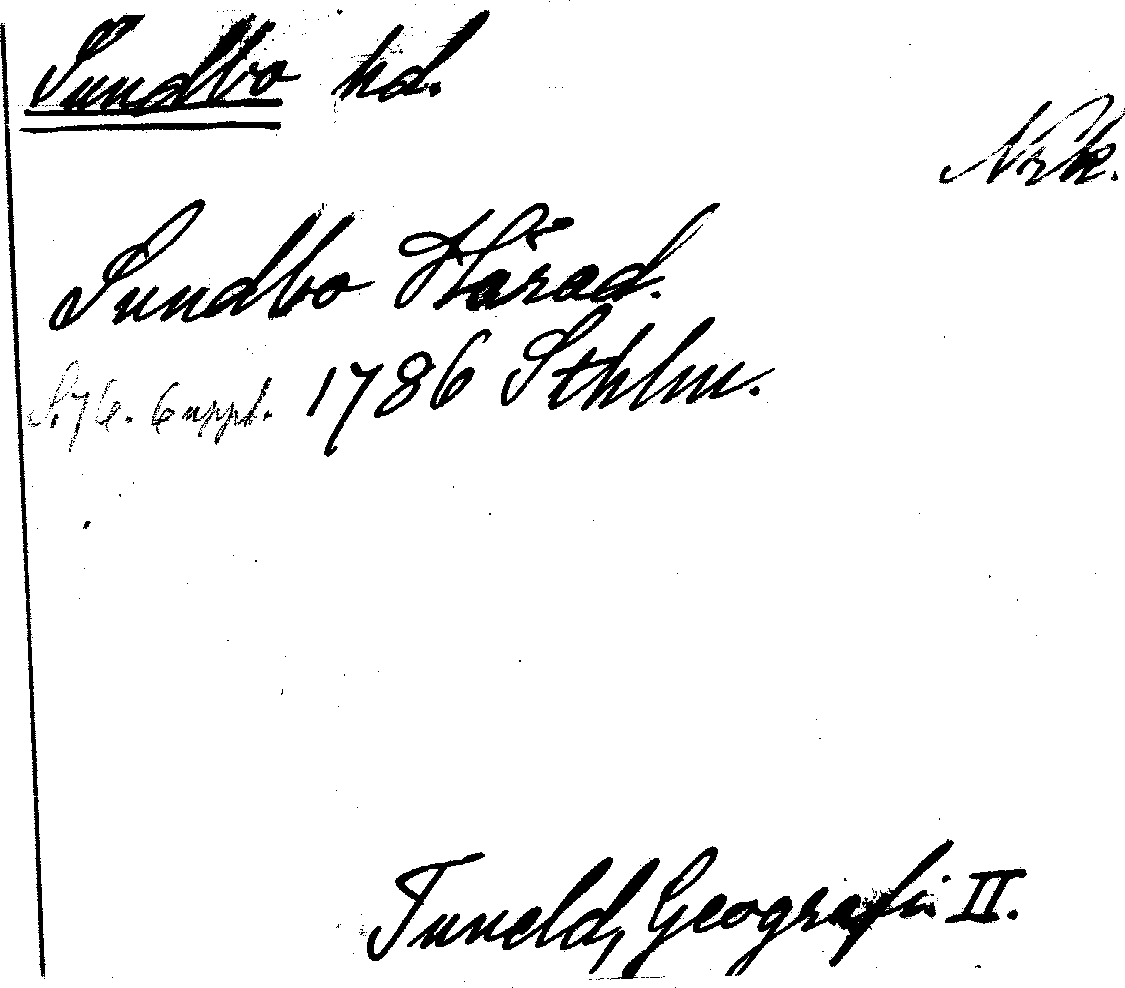 Sundbo hd.
Nrk.
Sundbo Härad.
S. 76. 6 uppl. 1786 Sthlm.
Tuneld, Geografi II.